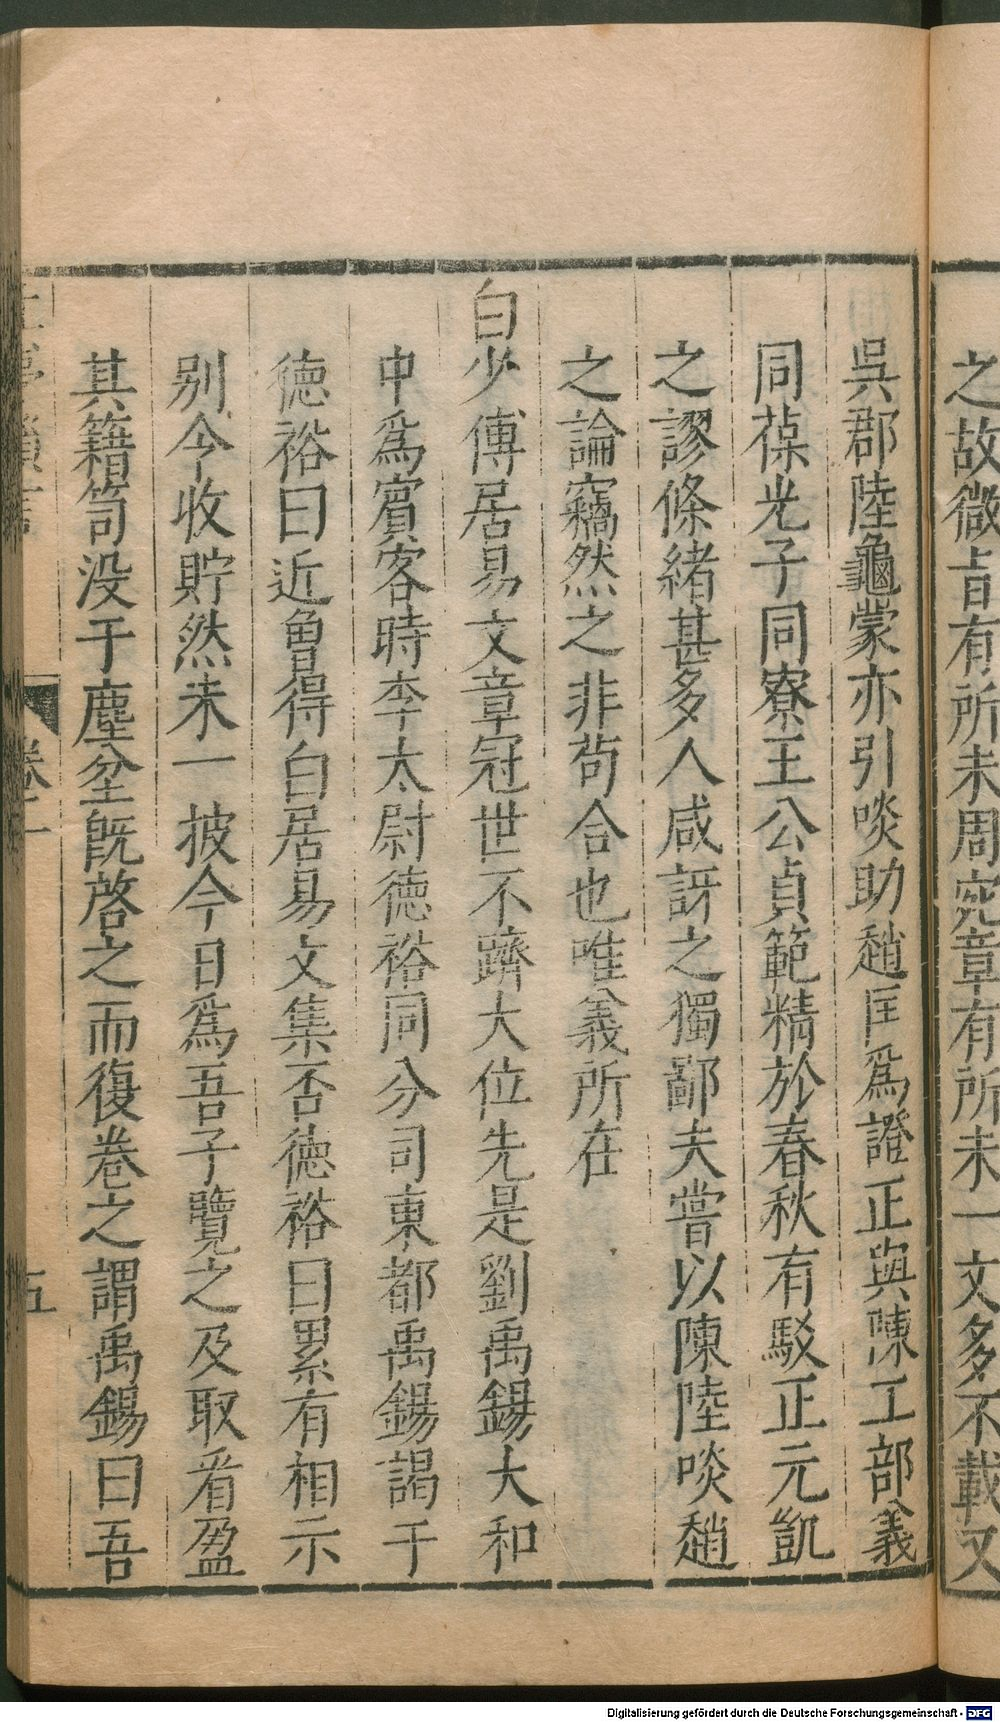 之故微旨有所未周宛章有所未一文多不載又
吳郡陸龜蒙亦引啖助趙匡爲證正與陳工部義
同葆光子同寮王公貞範精於春秋有駁正元凱
之謬條緒甚多人咸訝之獨鄙夫嘗以陳陸啖趙
之論竊然之非茍合也唯義所在
白少傅居易文章冠世不躋大位先是劉禹錫大和
中爲賓客時李太尉德裕同分司東都禹錫謁于
德裕曰近曾得白居易文集否德裕曰累有相示
别今收貯然未一披今日爲吾子覽之及取看盈
其籍笥没于塵坌旣啓之而復卷之謂禹錫曰吾
卷一
五
Digitalisierung gefördert durch die Deutsche Forschungsgemeinschaft - DFG